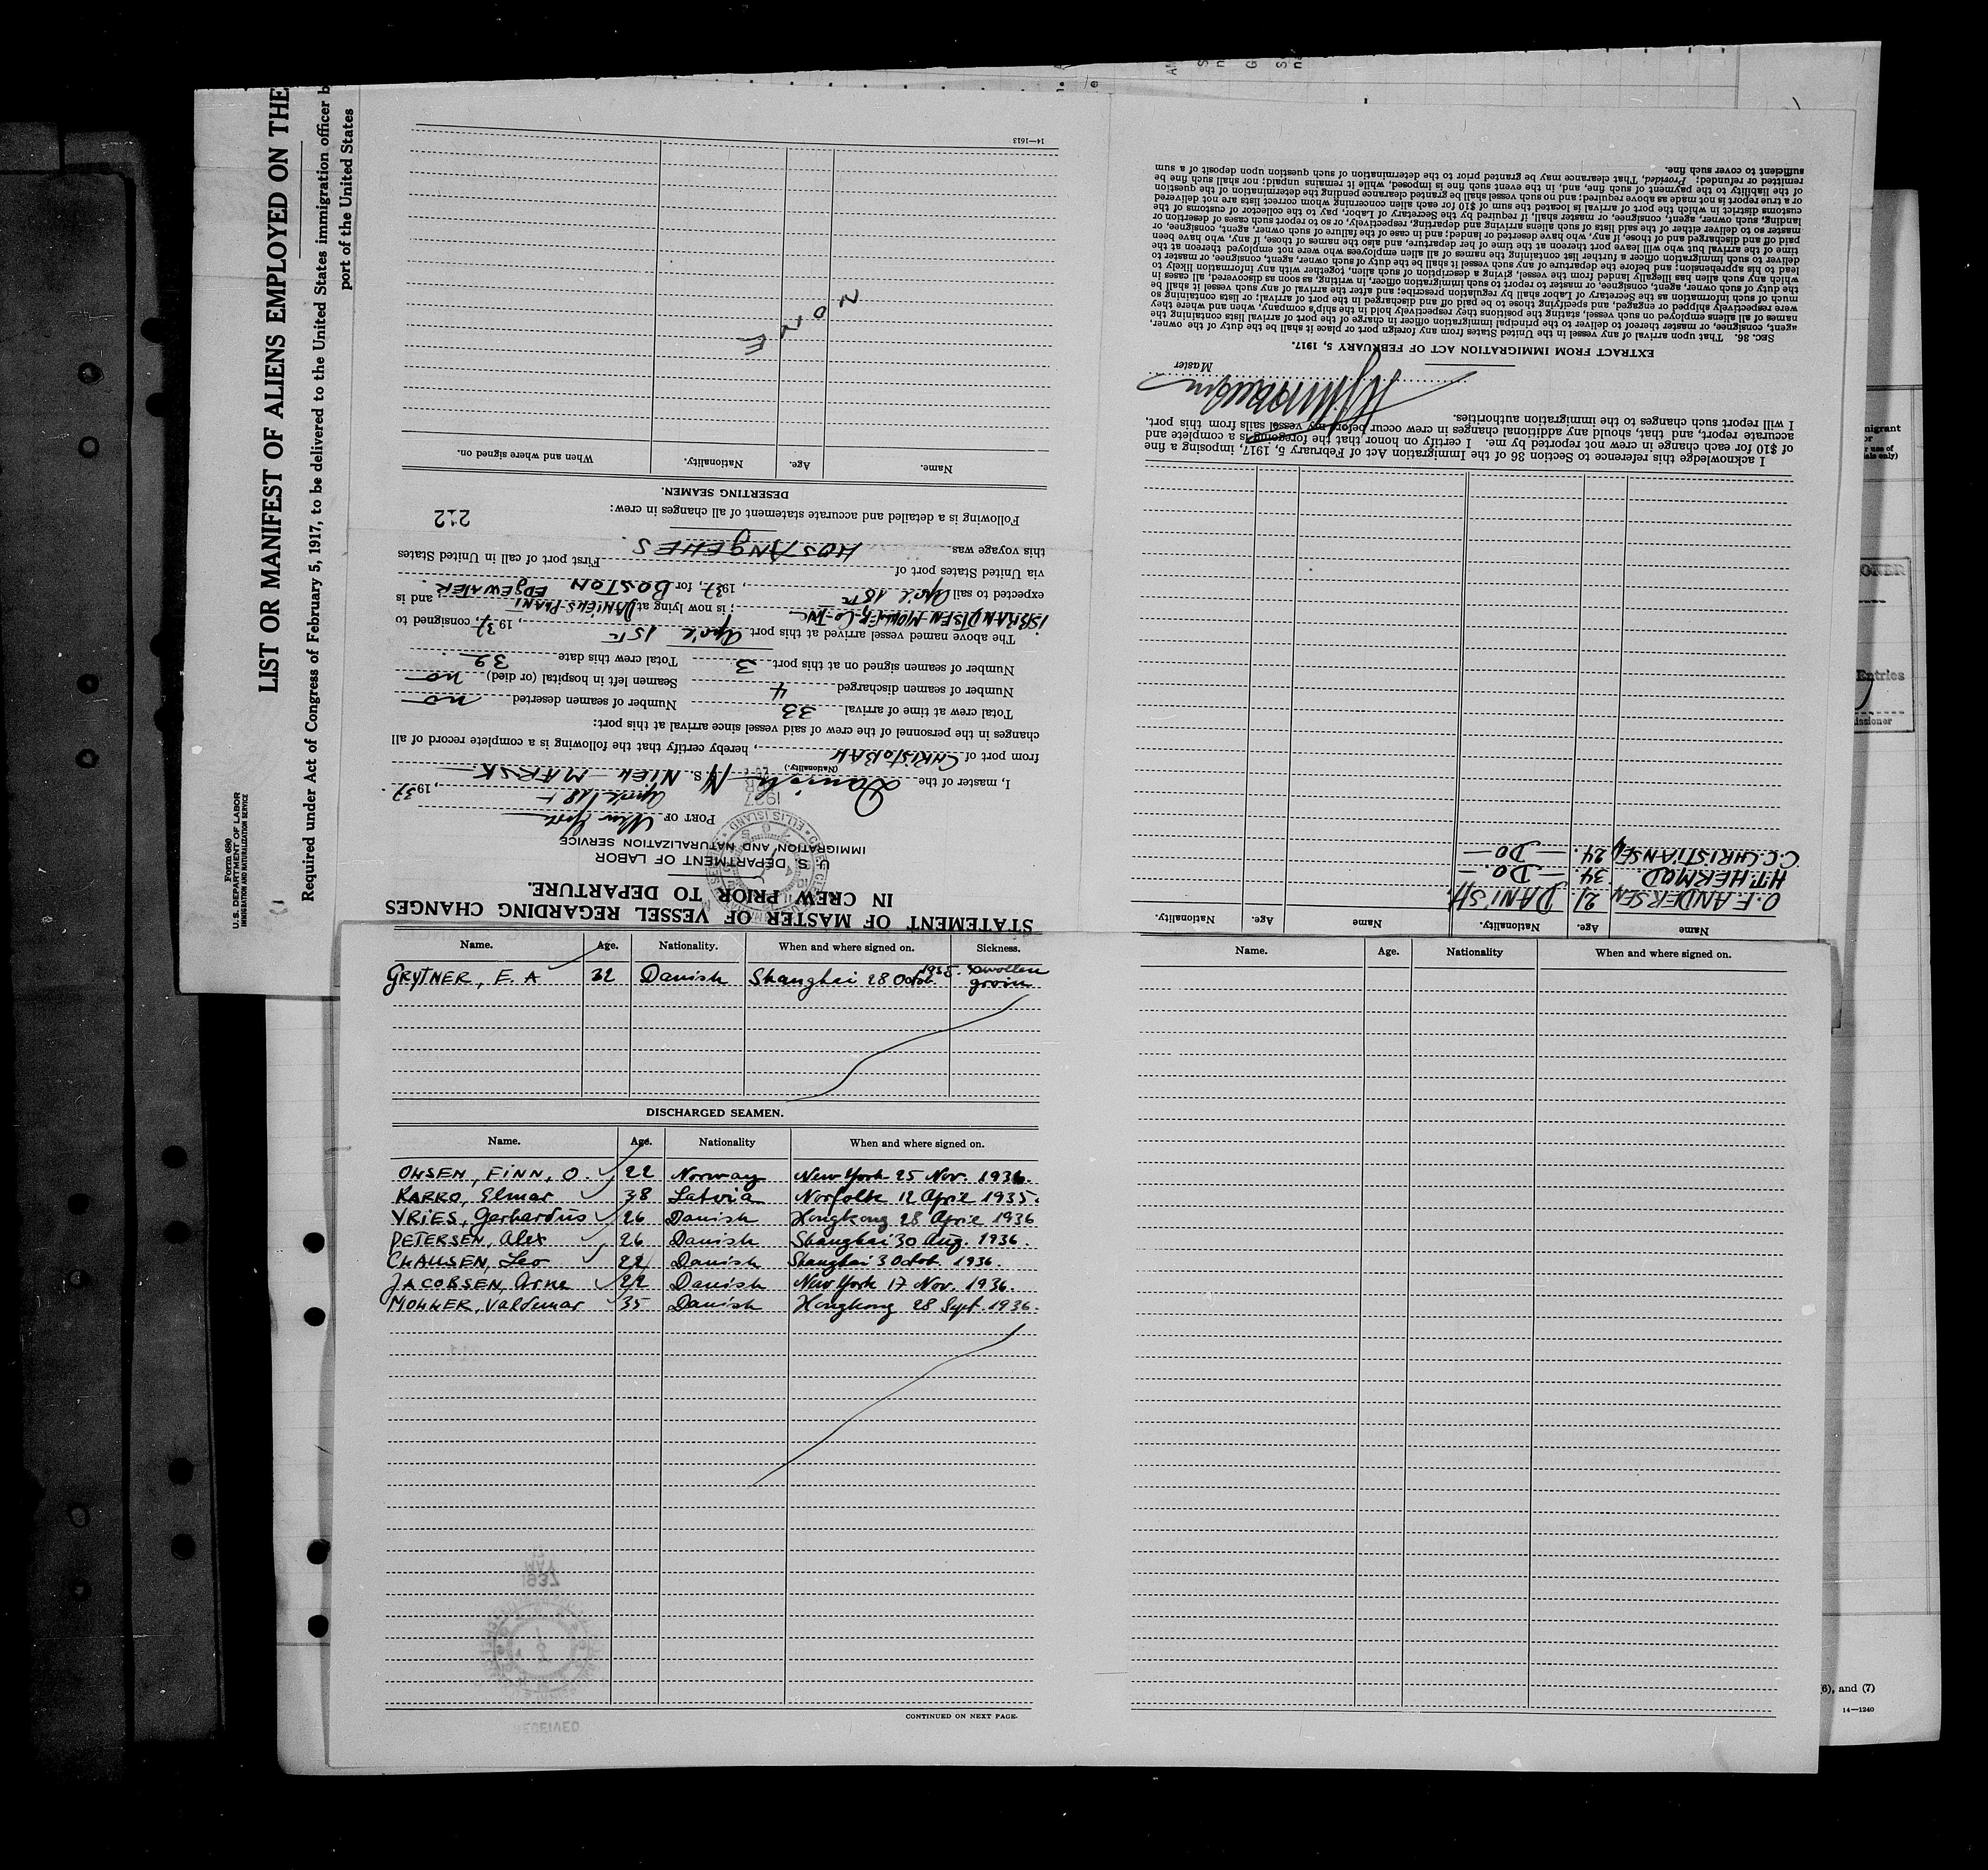 LIST OR MANIFEST OF ALIENS EMPLOYED ON THE
Required under Act of Congress of February 5, 1917, to be delivered to the United States immigration officer b
port of the United States
Form 680
U.S. DEPARTMENT OF LABOR
IMMIGRATION AND NATURALIZATION SERVICE
STATEMENT OF MASTER OF VESSEL REGARDING CHANGES
IN CREW PRIOR TO DEPARTURE.
U. S. DEPARTMENT OF LABOR
IMMIGRATION AND NATURALIZATION SERVICE
PORT OF New York
April 18th, 1937.
I, master of the Danish M/S. NIEL MÆRSK
(Nationality.)
from port of CHRISTOBAL, hereby certify that the following is a complete record of all
changes in the personnel of the crew of said vessel since arrival at this port:
Total crew at time of arrival 33 Number of seamen deserted no
Number of seamen discharged 4 Seamen left in hospital (or died) no
Number of seamen signed on at this port 3 Total crew this date 32.
The above named vessel arrived at this port April 15th, 1937, consigned to
ISBRANDTSEN-MOLLER-Co-INC; is now lying at DANIELS-PLANT EDGEWATER and is
expected to sail April 18th, 1937, for BOSTON
via United States port of First port of call in United States
this voyage was LOSANGELES.
Following is a detailed and accurate statement of all changes in crew: 212
DESERTING SEAMEN.
Name. Age. Nationality. When and where signed on.
NONE
14—1613
Name Age. Nationality. Name Age. Nationality.
O.F. ANDERSEN 21. DANISH.
H.T. HERMOD 34. — DO. —
C.C. CHRISTIANSEN 24. — DO —
I acknowledge this reference to Section 36 of the Immigration Act of February 5, 1917, imposing a fine
of $10 for each change in crew not reported by me. I certify on honor that the foregoing is a complete and
accurate report, and that, should any additional changes in crew occur before my vessel sails from this port,
I will report such changes to the immigration authorities.
Master
EXTRACT FROM IMMIGRATION ACT OF FEBRUARY 5, 1917.
SEC. 36. That upon arrival of any vessel in the United States from any foreign port or place it shall be the duty of the owner,
agent, consignee, or master thereof to deliver to the principal immigration officer in charge of the port of arrival lists containing the
names of all aliens employed on such vessel, stating the positions they respectively hold in the ship's company, when and where they
were respectively shipped or engaged, and specifying those to be paid off and discharged in the port of arrival; or lists containing so
much of such information as the Secretary of Labor shall by regulation prescribe; and after the arrival of any such vessel it shall be
the duty of such owner, agent, consignee, or master to report to such immigration officer, in writing, as soon as discovered, all cases in
which any such alien has illegally landed from the vessel, giving a description of such alien, together with any information likely to
lead to his apprehension; and before the departure of any such vessel it shall be the duty of such owner, agent, consignee, or master to
deliver to such immigration officer a further list containing the names of all alien employees who were not employed thereon at the
time of the arrival but who will leave port thereon at the time of her departure, and also the names of those, if any, who have been
paid off and discharged and of those, if any, who have deserted or landed; and in case of the failure of such owner, agent, consignee, or
master so to deliver either of the said lists of such aliens arriving and departing, respectively, or so to report such cases of desertion or
landing, such owner, agent, consignee, or master shall, if required by the Secretary of Labor, pay to the collector of customs of the
customs district in which the port of arrival is located the sum of $10 for each alien concerning whom correct lists are not delivered
or a true report is not made as above required; and no such vessel shall be granted clearance pending the determination of the question
of the liability to the payment of such fine, and, in the event such fine is imposed, while it remains unpaid; nor shall such fine be
remitted or refunded; Provided, That clearance may be granted prior to the determination of such question upon deposit of a sum
sufficient to cover such fine.
Name. Age. Nationality. When and where signed on. Sickness.
GRYTNER, E. A 32 Danish Shanghai 28 Octob. 1935. Swollen groin
DISCHARGED SEAMEN.
Name. Age. Nationality When and where signed on.
OHSEN, FINN, O. 22 Norway New York 25 Nov. 1936.
KARRO, Elmar 38 Latvia Norfolk 12 April 1935.
VRIES, Gerhardus 26 Danish Hongkong 28 April 1936
PETERSEN, Alex 26 Danish Shanghai 30 Aug. 1936.
CLAUSEN, Leo 22 Danish Shanghai 3 Octob. 1936.
JACOBSEN, Arne 22 Danish New York 17 Nov. 1936.
MOLLER, Valdemar 35 Danish Hongkong 28 Sept. 1936.
CONTINUED ON NEXT PAGE.
Name. Age. Nationality When and where signed on.
MAY
1937
RECEIVED
migrant
or
r use of
ials only)
Entries
issioner
6), and (7)
14—1240